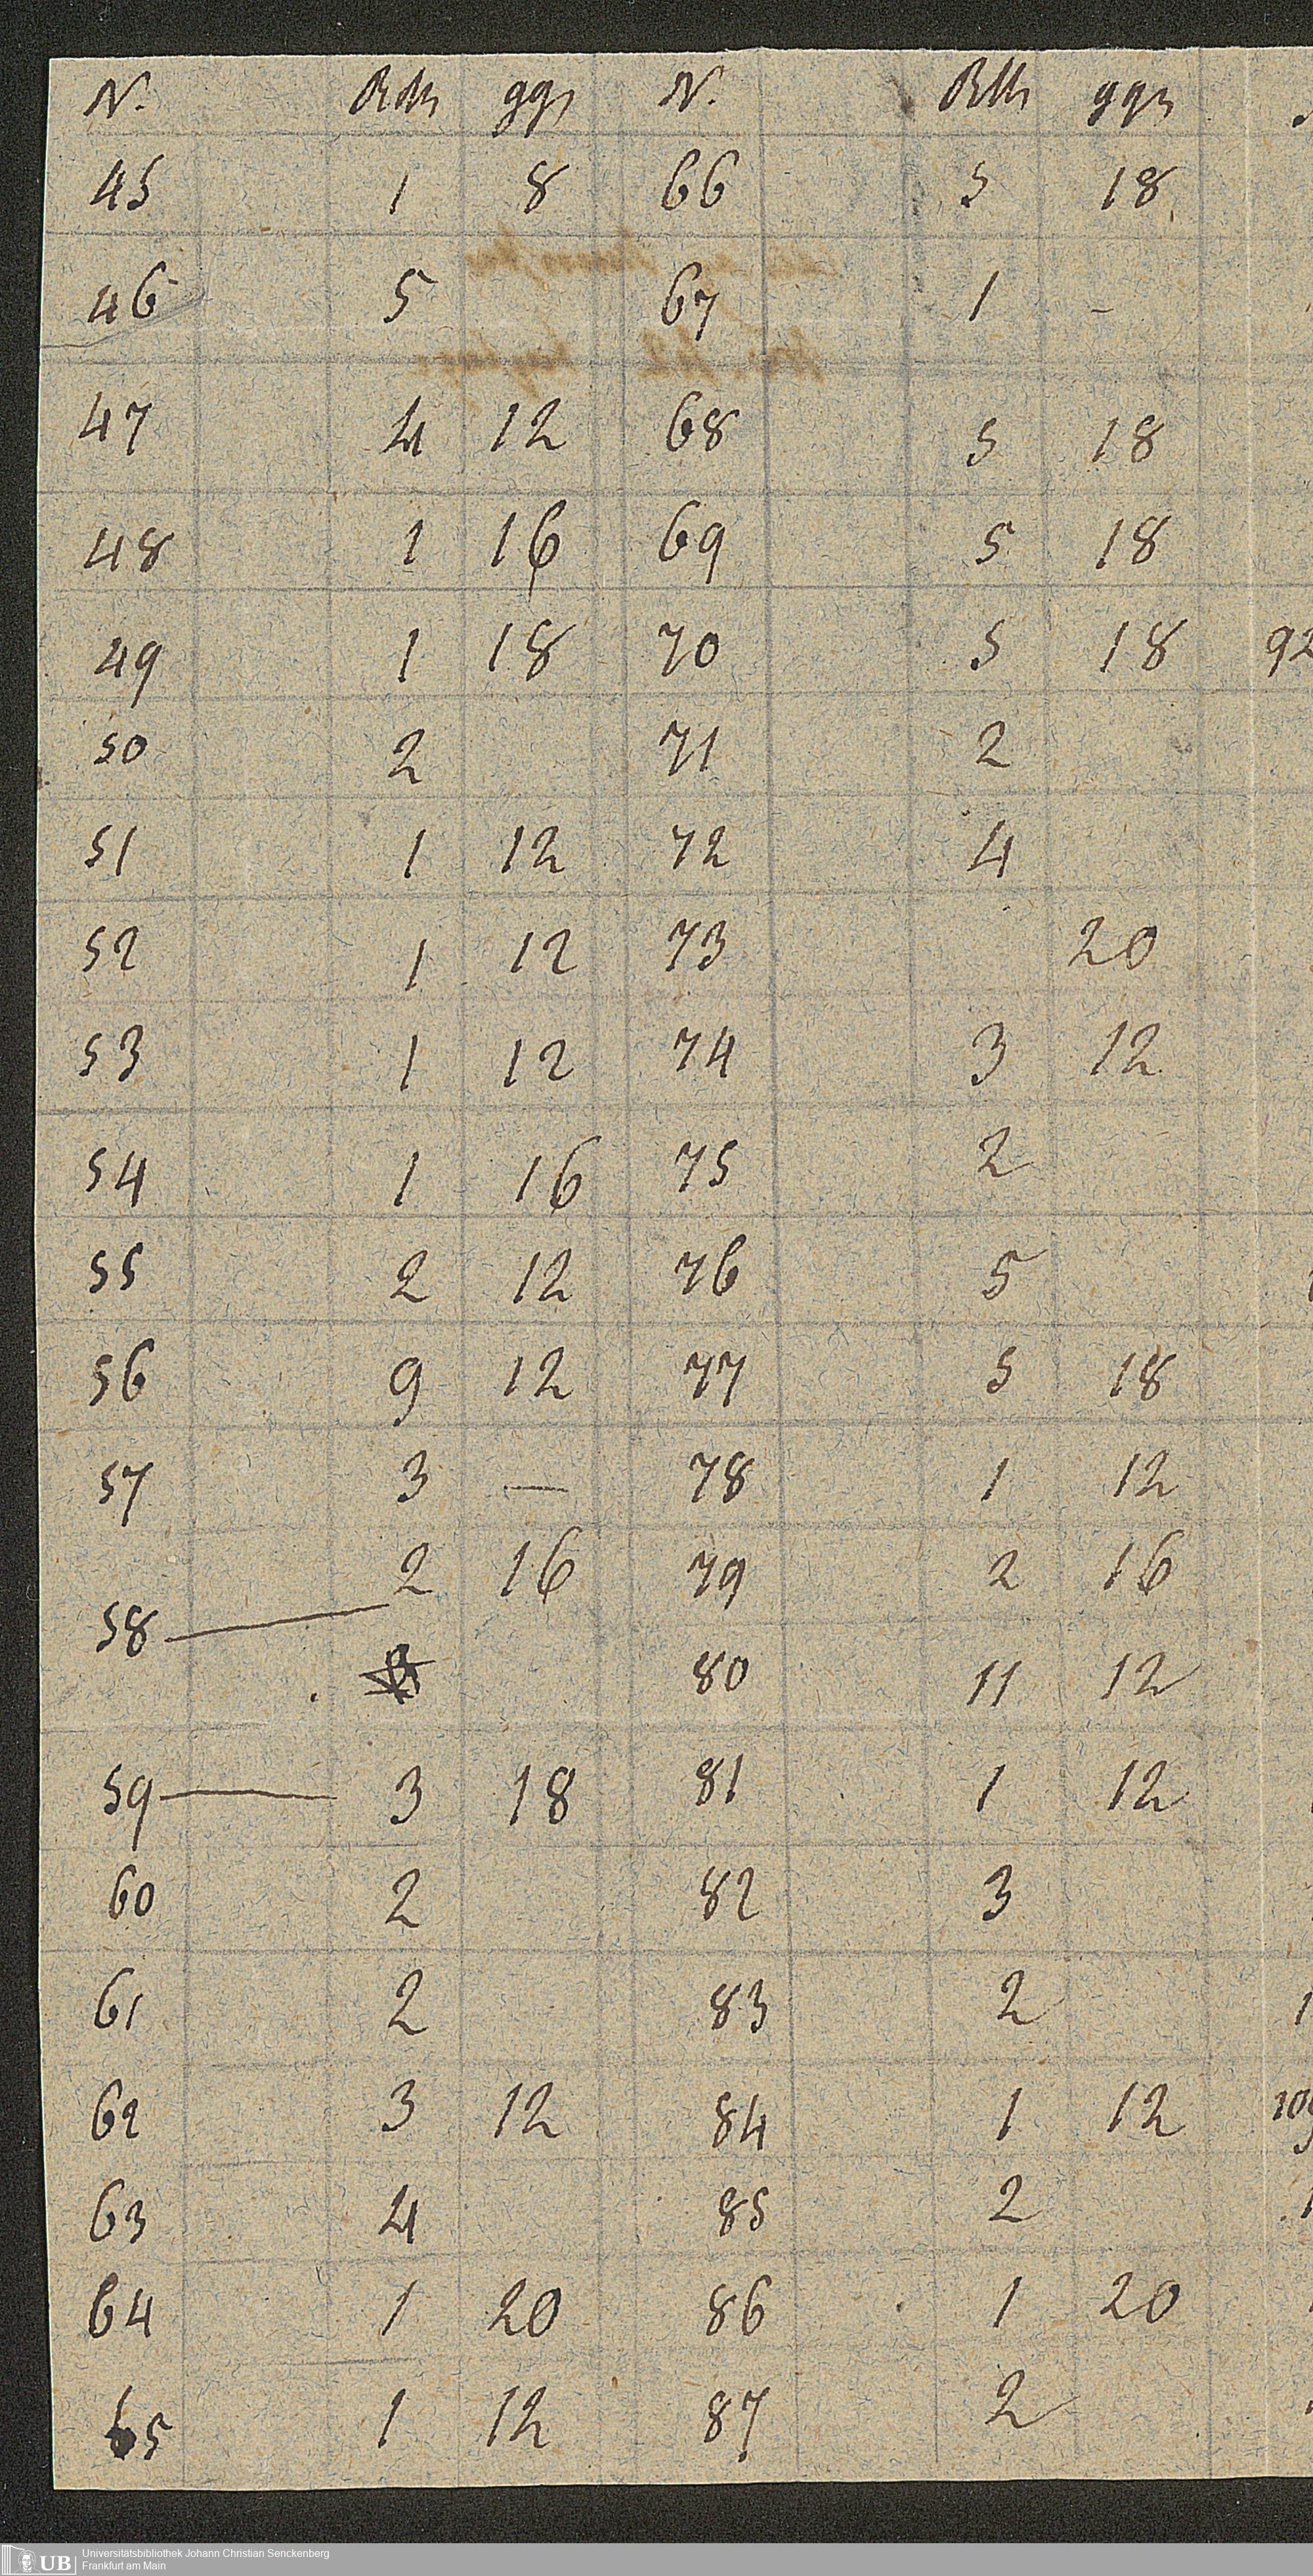 N. Rth ggr N. Rth ggr
45 1 8 66 5 18
46 5 67 1 -
47 4 12 68 5 18
48 1 16 69 5 18
49 1 18 70 5 18 92
50 2 71 2
51 1 12 72 4
52 1 12 73 20
53 1 12 74 3 12
54 1 16 75 2
55 2 12 76 5
56 9 12 77 5 18
57 3 — 78 1 12
58 — 2 16 79 2 16
80 11 12
59 — 3 18 81 1 12
60 2 82 3
61 2 83 2
62 3 12 84 1 12
63 4 85 2
64 1 20 86 1 20
65 1 12 87 2
UB Universitätsbibliothek Johann Christian Senckenberg
Frankfurt am Main